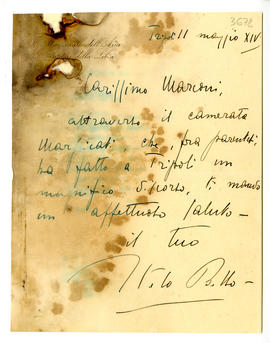 3672
maggio XIV
Carissimo Marconi,
attraverso il camerata
Marpicati, che, fra parentesi,
ha fatto a Tripoli un
magnifico sforzo, ti mando
un affettuoso saluto -
il tuo
Italo Balbo -